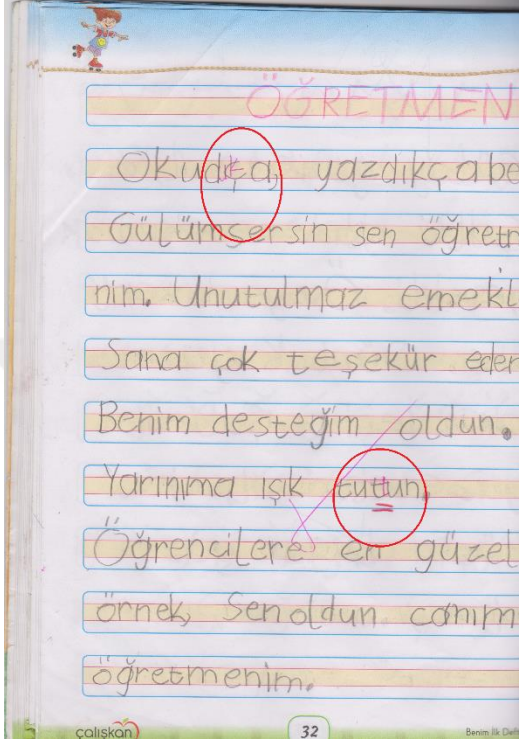 ÖĞRETMEN
Okudkça, yazdıkça be
Gülümsersin sen öğretm
nim. Unutulmaz emekl
Sana çok teşekür eder
Benim desteğim oldun.
Yarınıma ışık tuttun,
Öğrencilere en güzel
örnek, Sen oldun canım
öğretmenim.
çalışkan 32 Benim İlk Deft